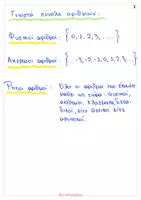 Γνωστά σύνολα αριθμών:
Φυσικοί αριθμοί: {0, 1, 2, 3, ....}
Ακέραιοι αριθμοί: {...-3, -2, -1, 0, 1, 2, 3...}
Ρητοί αριθμοί: Όλοι οι αριθμοί που
μάθει ως τώρα: φυσικοί,
ακέραιοι, κλάσματα, δεκα-
δικοί, είτε θετικοί είτε
αρνητικοί.